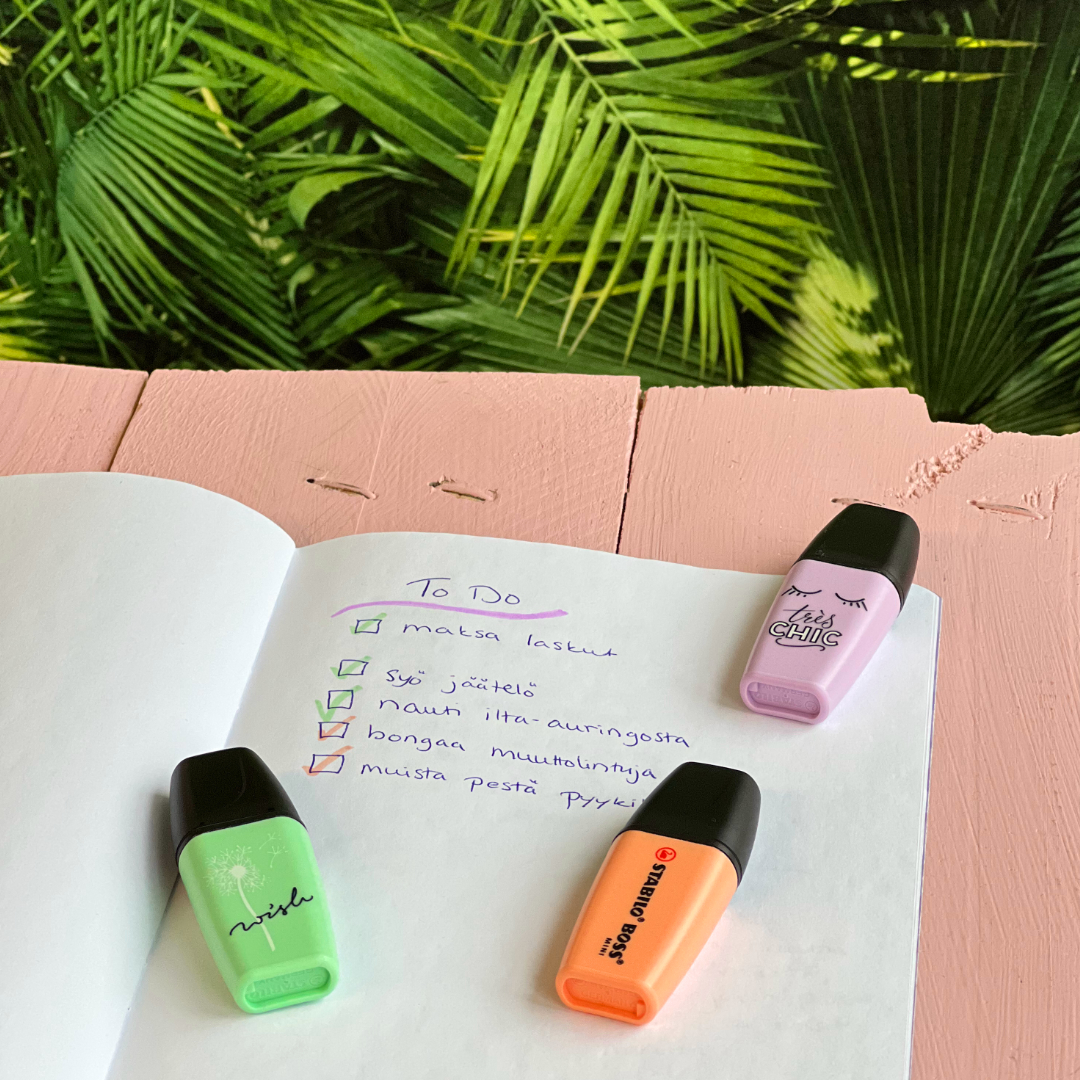 To Do
maksa laskut
syö jäätelö
nauti ilta-auringosta
bongaa muuttolintuja
muista pestä
très
CHIC
wish
STABILO® BOSS®
MINI